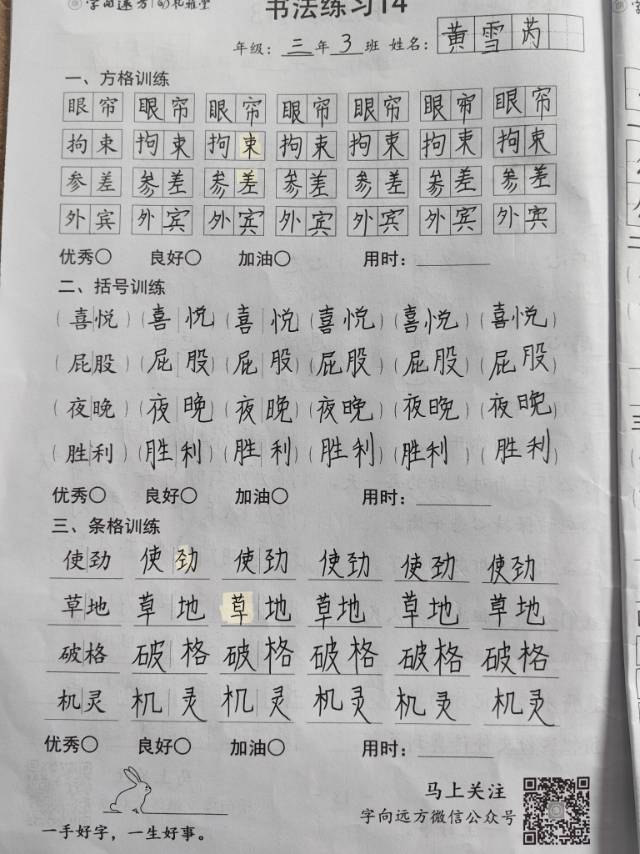 字向远方
书法练习14
年级：三年3班 姓名：黄雪芮
一、方格训练
眼帘 眼帘 眼帘 眼帘 眼帘 眼帘 眼帘
拘束 拘束 拘束 拘束 拘束 拘束 拘束
参差 参差 参差 参差 参差 参差 参差
外宾 外宾 外宾 外宾 外宾 外宾 外宾
优秀○ 良好○ 加油○ 用时：
二、括号训练
（喜悦）（喜悦）（喜悦）（喜悦）（喜悦）（喜悦）
（屁股）（屁股）（屁股）（屁股）（屁股）（屁股）
（夜晚）（夜晚）（夜晚）（夜晚）（夜晚）（夜晚）
（胜利）（胜利）（胜利）（胜利）（胜利）（胜利）
优秀○ 良好○ 加油○ 用时：
三、条格训练
使劲 使劲 使劲 使劲 使劲 使劲
草地 草地 草地 草地 草地 草地
破格 破格 破格 破格 破格 破格
机灵 机灵 机灵 机灵 机灵 机灵
优秀○ 良好○ 加油○ 用时：
一手好字，一生好事。
马上关注
字向远方微信公众号